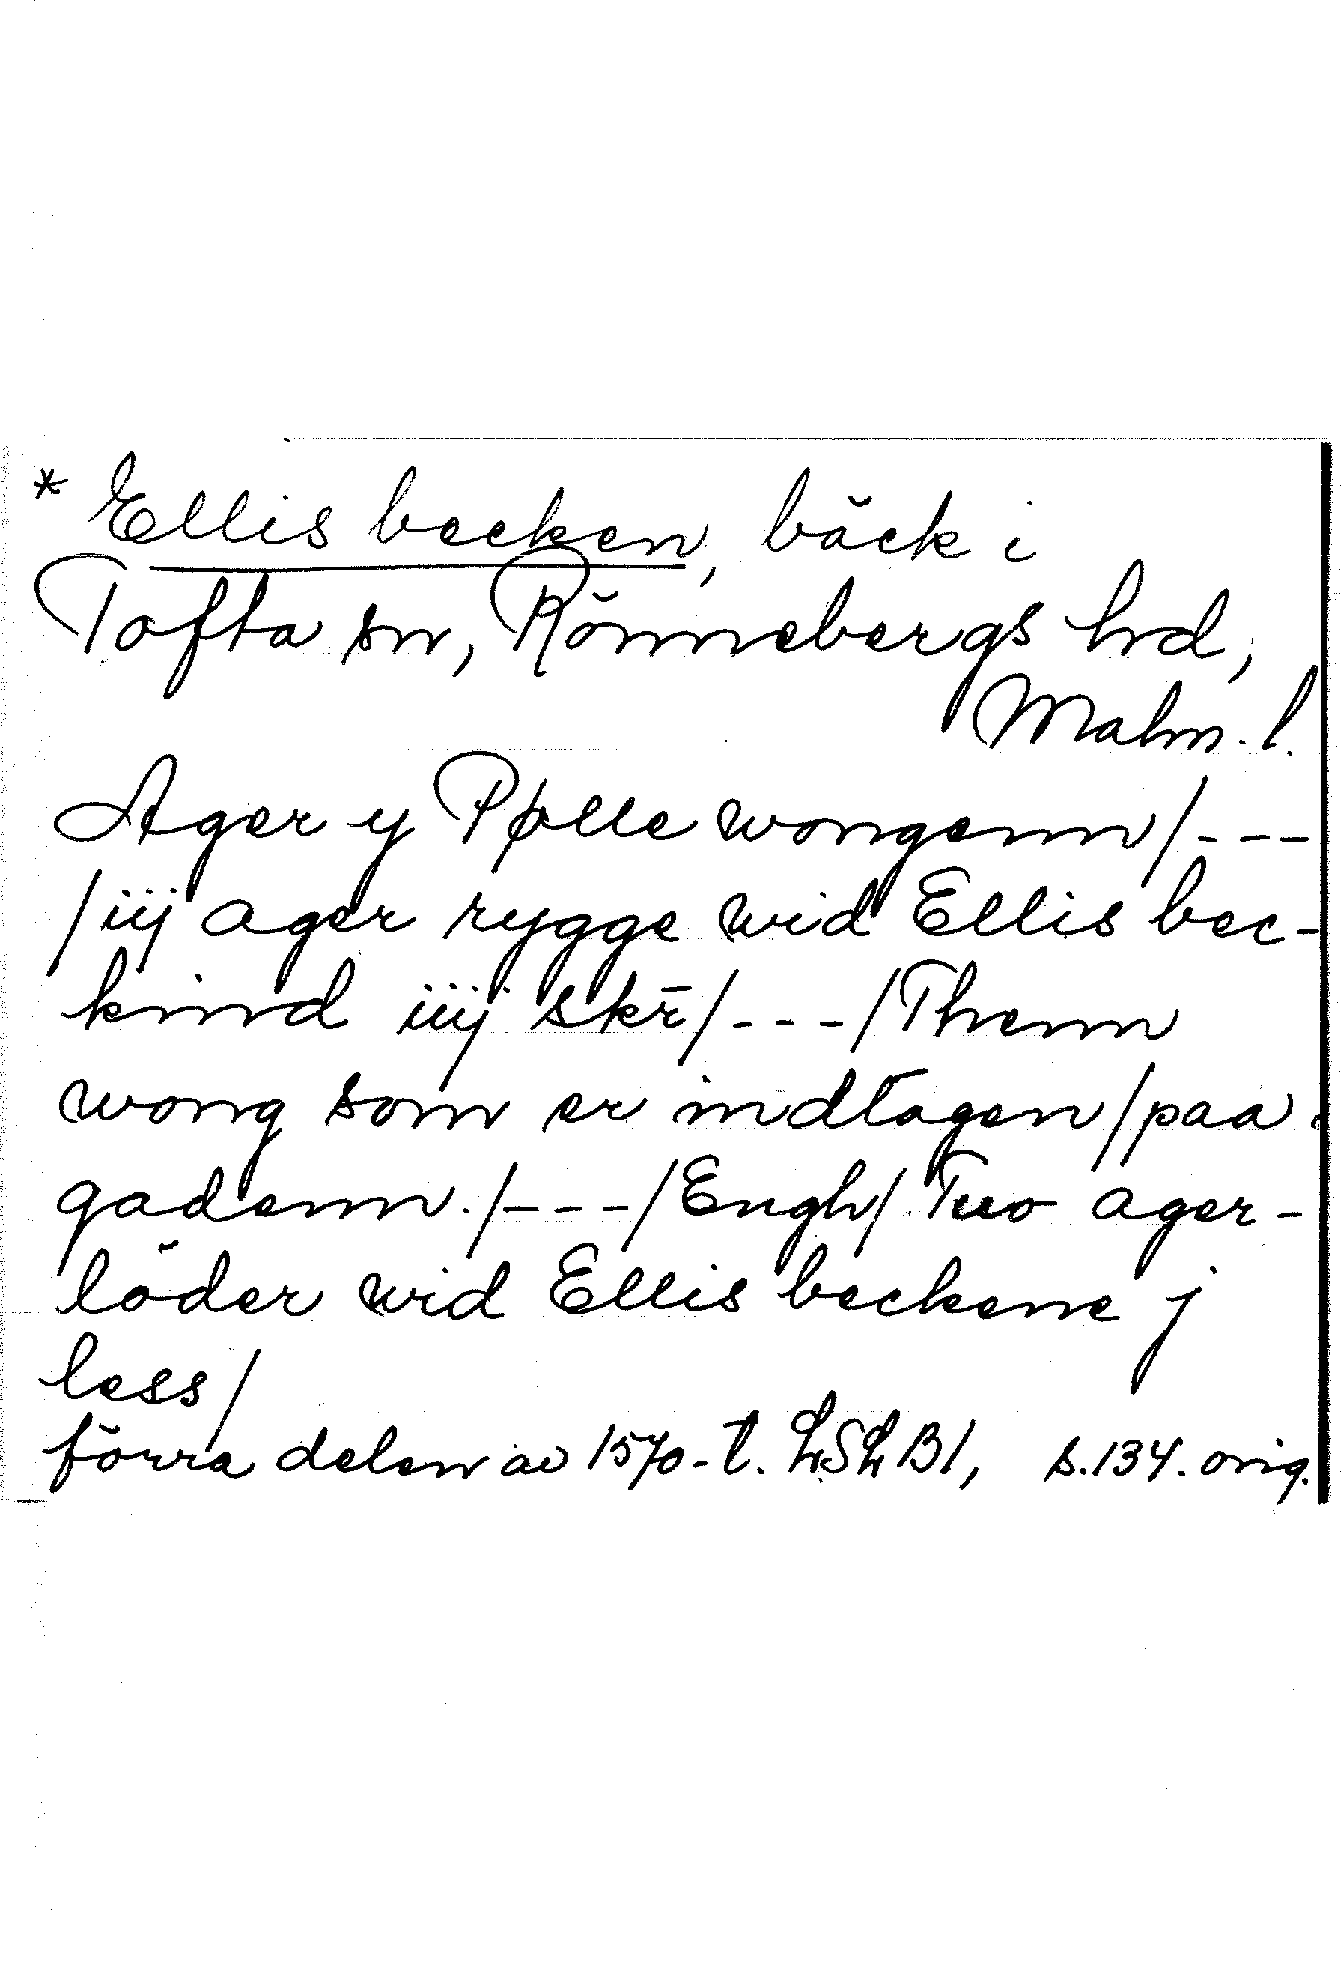 * Ellis becken, bäck i
Tofta sn, Rönnebergs hd,
Malm. l.
Ager y Pølle wongenn/---
/iij ager rygge wid Ellis bec-
kind iiij skr̄/---/Thenn
wong som er indtagen/paa
gadenn./---/Engh/Tuo ager-
löder wid Ellis beckene j
less/
förra delen av 1570-t. LSLB1, s.134. orig.